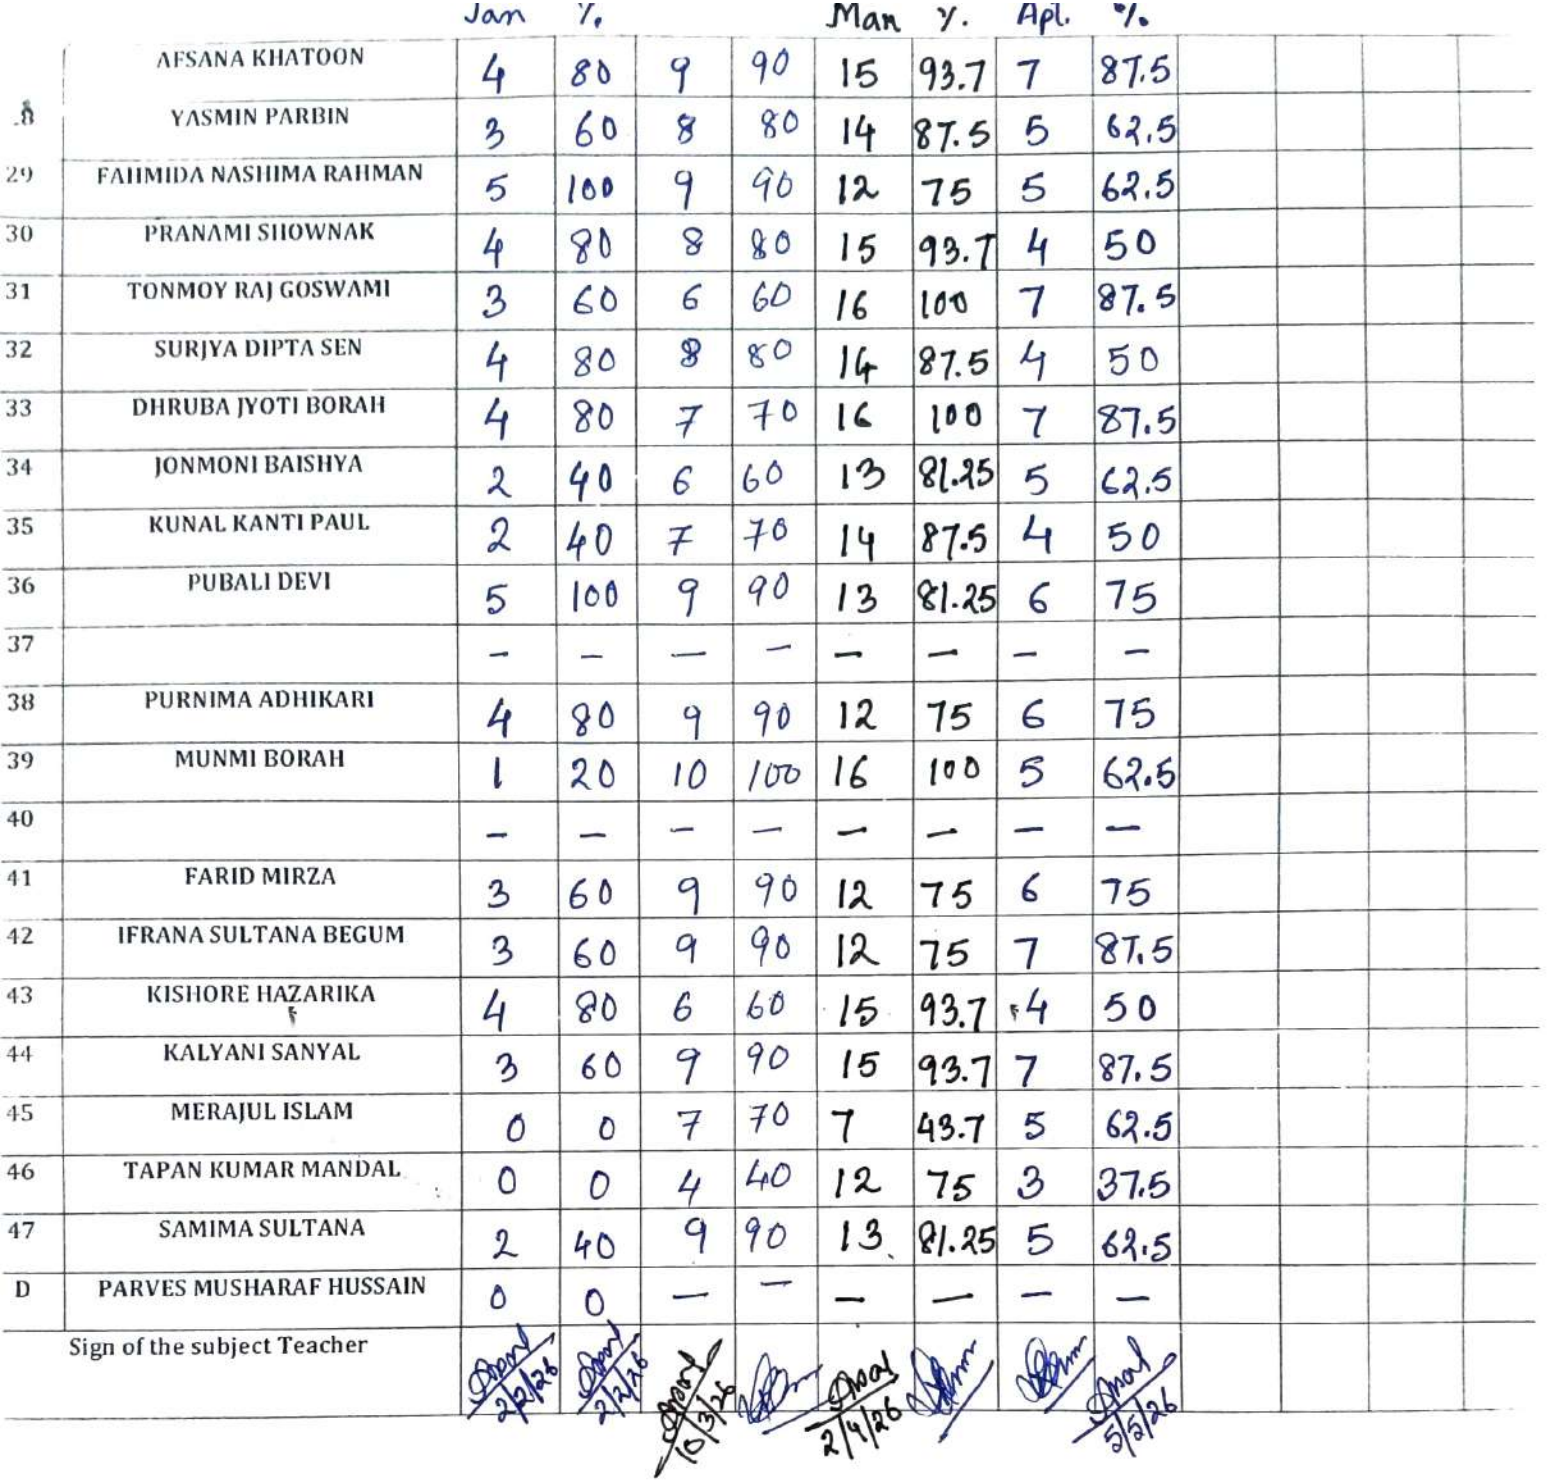 Jan %. Mar %. Apl. %.
AFSANA KHATOON 4 80 9 90 15 93.7 7 87.5
YASMIN PARBIN 3 60 8 80 14 87.5 5 62.5
29 FAHMIDA NASHIMA RAHMAN 5 100 9 90 12 75 5 62.5
30 PRANAMI SHOWNAK 4 80 8 80 15 93.7 4 50
31 TONMOY RAJ GOSWAMI 3 60 6 60 16 100 7 87.5
32 SURJYA DIPTA SEN 4 80 8 80 14 87.5 4 50
33 DHRUBA JYOTI BORAH 4 80 7 70 16 100 7 87.5
34 JONMONI BAISHYA 2 40 6 60 13 81.25 5 62.5
35 KUNAL KANTI PAUL 2 40 7 70 14 87.5 4 50
36 PUBALI DEVI 5 100 9 90 13 81.25 6 75
37 - - - - - - - -
38 PURNIMA ADHIKARI 4 80 9 90 12 75 6 75
39 MUNMI BORAH 1 20 10 100 16 100 5 62.5
40 - - - - - - - -
41 FARID MIRZA 3 60 9 90 12 75 6 75
42 IFRANA SULTANA BEGUM 3 60 9 90 12 75 7 87.5
43 KISHORE HAZARIKA 4 80 6 60 15 93.7 4 50
44 KALYANI SANYAL 3 60 9 90 15 93.7 7 87.5
45 MERAJUL ISLAM 0 0 7 70 7 43.7 5 62.5
46 TAPAN KUMAR MANDAL 0 0 4 40 12 75 3 37.5
47 SAMIMA SULTANA 2 40 9 90 13 81.25 5 62.5
D PARVES MUSHARAF HUSSAIN 0 0 - - - - - -
Sign of the subject Teacher
2/2/26 2/2/26 10/3/26 2/4/26 5/5/26